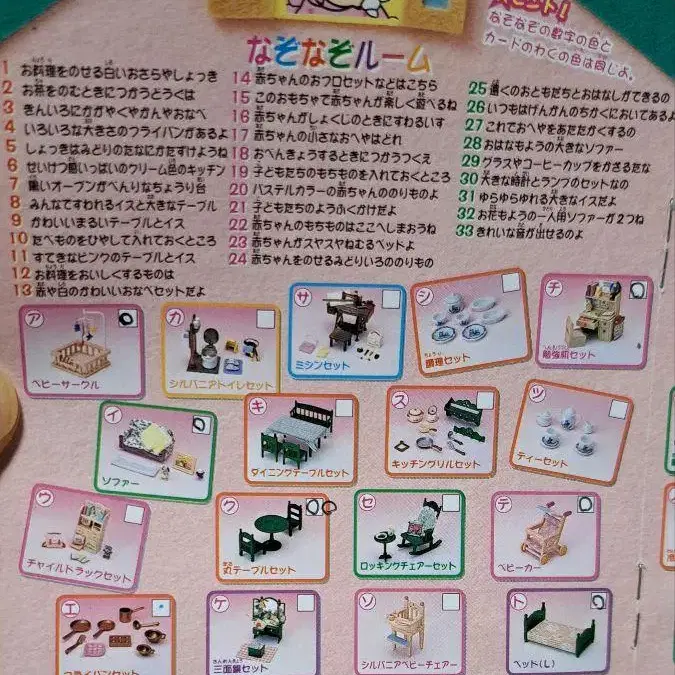 なぞなぞの数字の色と
カードのわくの色は同じよ。
なぞなぞルーム
1 お料理をのせる白いおさらやしょっき
2 お茶をのむときにつかうとうぐは
3 きんいろにかがやくやかんやおなべ
4 いろいろな大きさのフライパンがあるよ
5 しょっきはみどりのたなにかたずけようね
6 せいけつ感いっぱいのクリーム色のキッチン
7 黒いオーブンがべんりなちょうり台
8 みんなですわれるイスと大きなテーブル
9 かわいいまるいテーブルとイス
10 たべものをひやして入れておくところ
11 すてきなピンクのテーブルとイス
12 お料理をおいしくするものは
13 赤や白のかわいいおなべセットだよ
14 赤ちゃんのおフロセットなどはこちら
15 このおもちゃで赤ちゃんが楽しく遊べるね
16 赤ちゃんがしょくじのときにすわるいす
17 赤ちゃんの小さなおへやはどれ
18 おべんきょうするときにつかうつくえ
19 子どもたちのもちものを入れておくところ
20 パステルカラーの赤ちゃんののりものよ
21 子どもたちのようふくかけだよ
22 赤ちゃんのもちものはここへしまおうね
23 赤ちゃんがスヤスヤねむるベッドよ
24 赤ちゃんをのせるみどりいろののりもの
25 遠くのおともだちとおはなしができるの
26 いつもはげんかんのちかくにおいてあるよ
27 これでおへやをあたたかくするの
28 おはなもようの大きなソファー
29 グラスやコーヒーカップをかざるたな
30 大きな時計とランプのセットなの
31 ゆらゆられる大きなイスだよ
32 お花もようの一人用ソファーが2つね
33 きれいな音が出せるのよ
ア
ベビーサークル
カ
シルバニアトイレセット
サ
ミシンセット
シ
調理セット
チ
勉強机セット
イ
ソファー
キ
ダイニングテーブルセット
ス
キッチングリルセット
ツ
ティーセット
ウ
チャイルドラックセット
ク
丸テーブルセット
セ
ロッキングチェアーセット
テ
ベビーカー
エ
フライパンセット
ケ
三面鏡セット
ソ
シルバニアベビーチェアー
ト
ベッド(L)